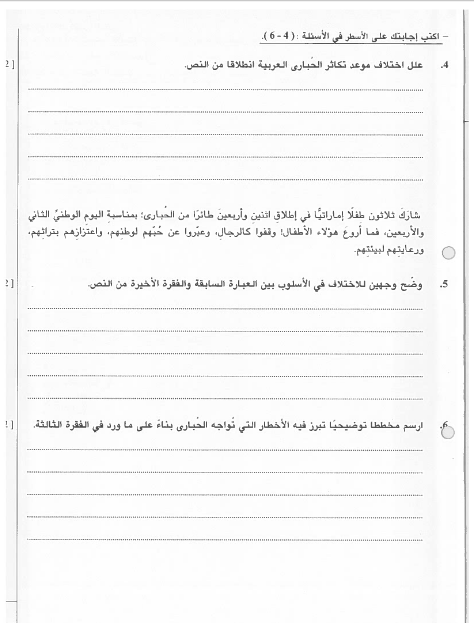 – اكتب إجابتك على الأسطر في الأسئلة : ( 4 - 6 ).
4. علل اختلاف موعد تكاثر الحُبارى العربية انطلاقا من النص.
2 ]
شاركَ ثلاثون طفلًا إماراتيًّا في إطلاقِ اثنينِ وأربعينَ طائرًا من الحُبارى؛ بمناسبةِ اليوم الوطنيِّ الثاني
والأربعين، فما أروعَ هؤلاء الأطفال! وقفوا كالرجالِ، وعبّروا عن حُبِّهم لوطنِهم، واعتزازِهم بتراثِهم،
ورعايتِهم لبيئتِهم.
5. وضّح وجهين للاختلاف في الأسلوب بين العبارة السابقة والفقرة الأخيرة من النص.
2 ]
6. ارسم مخططا توضيحيًا تبرز فيه الأخطار التي تُواجه الحُبارى بناءً على ما ورد في الفقرة الثالثة.